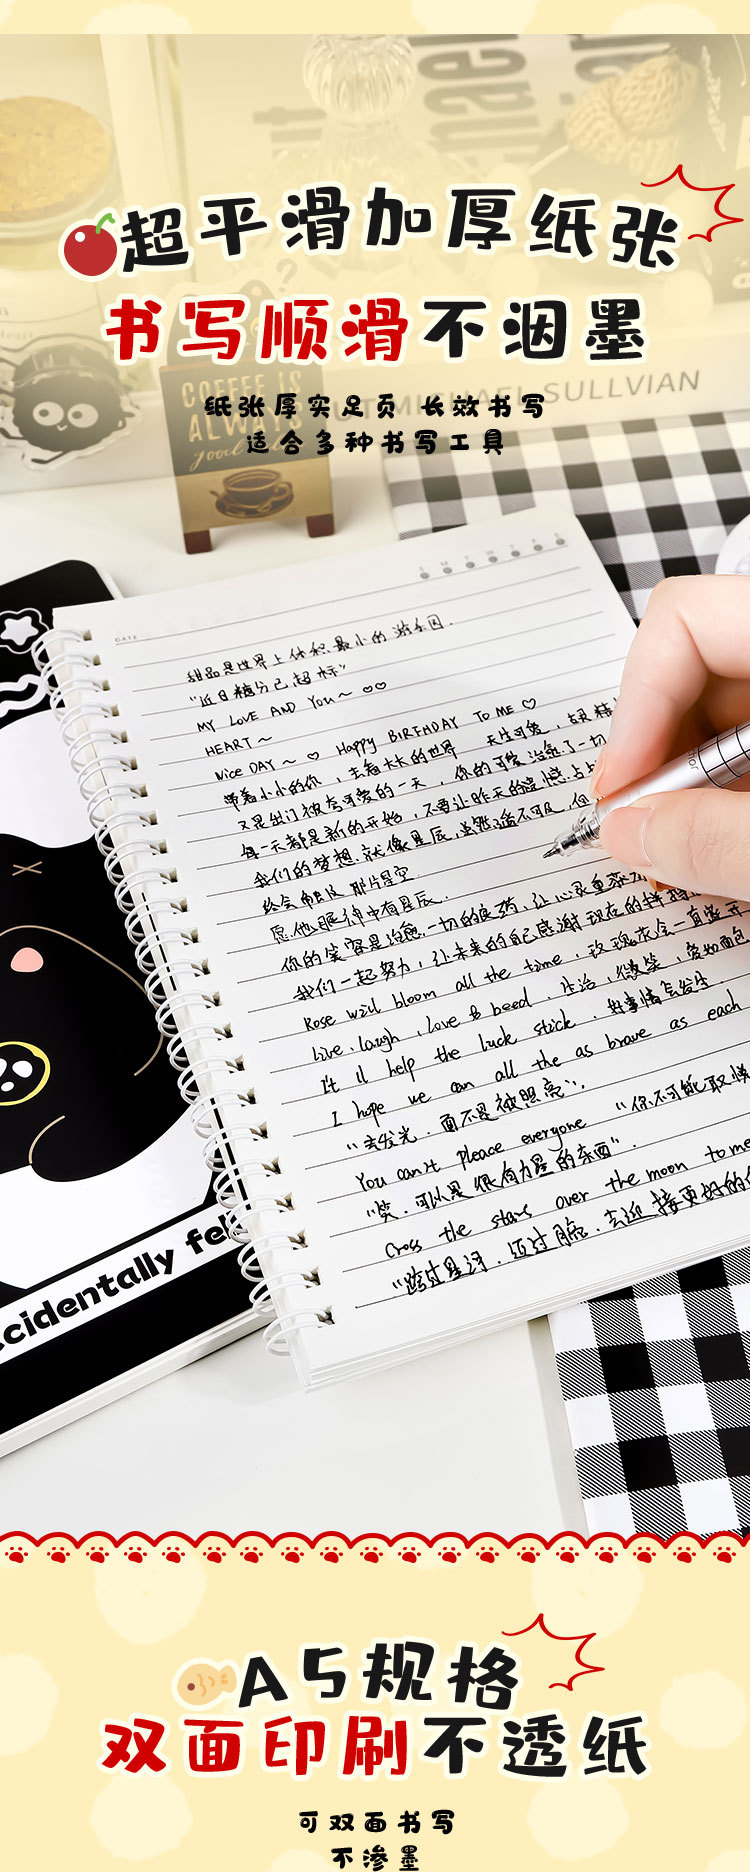 超平滑加厚纸张
书写顺滑不洇墨
纸张厚实足页 长效书写
适合多种书写工具
COFFEE IS
ALWAYS
MICHAEL SULLVIAN
S M T W T F S
DATE
甜品是世界上体积最小的游乐园.
"近日糖分已超标"
MY LOVE AND You~ ♡♡
HEART~
Nice DAY~ ♡ Happy BIRTHDAY To ME ♡
带着小小的你, 走着大大的世界 天生可爱,
又是出门被夸可爱的一天, 你的可爱治愈了一切
每一天都是新的开始, 不要让昨天的遗憾
我们的梦想.就像星辰,虽然遥不可及,但
终会 那片星空
愿他眼神中有星辰.
你的笑容是治愈一切的良药,
我们一起努力, 让未来的自己感谢现在的样
Rose will bloom all the time, 玫瑰花会一直盛开
Live. laugh, love & beed. 生活, 微笑, 爱如面包
It ll help the luck stick. 好事情会发生.
I hope we can all the as brave as each
"去发光.而不是被照亮".
You can't pleace everyone "你不可能取悦
"笑.可以是很有力量的东西".
Cross the stars over the moon to me
"跨过星河.迈过月亮.去迎接更好的
ccidentally fel
A5规格
双面印刷不透纸
可双面书写
不渗墨